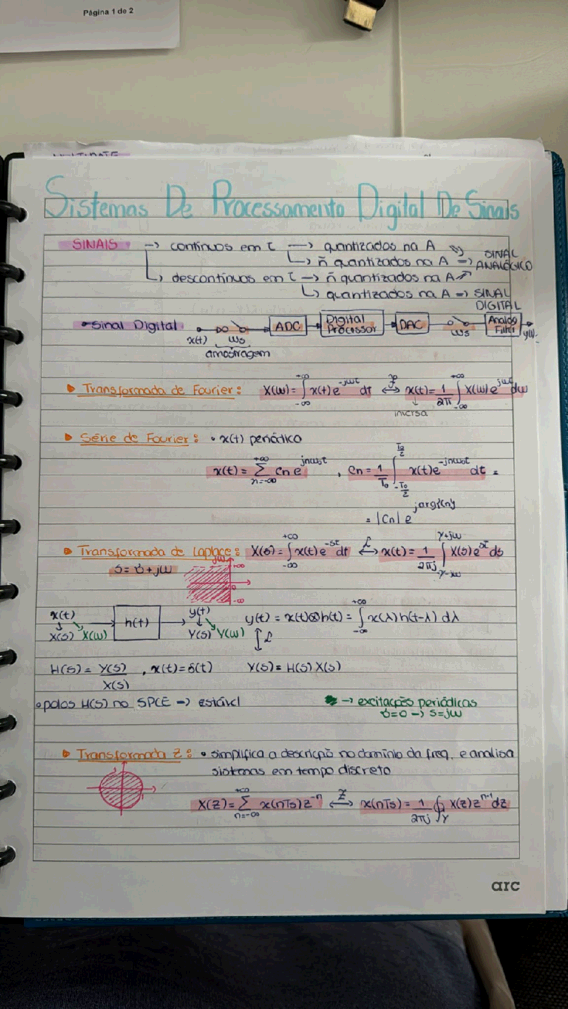 Página 1 de 2
Sistemas De Processamento Digital De Sinais
SINAIS → contínuos em t → quantizados na A ↘ SINAL
↳ ñ quantizados na A ⇒ ANALÓGICO
↳ descontínuos em t → ñ quantizados na A ↗
↳ quantizados na A ⇒ SINAL DIGITAL
• Sinal Digital x(t) ωs ADC Digital Processor DAC ωs Analog Filter y(t)
amostragem
▸ Transformada de Fourier: X(ω) = ∫_{-∞}^{+∞} x(t) e^{-jωt} dt ⟷ᶠ x(t) = 1/2π ∫_{-∞}^{+∞} X(ω) e^{jωt} dω
inversa
▸ Série de Fourier: • x(t) periódica
x(t) = ∑_{n=-∞}^{+∞} Cn e^{jnω₀t} , Cn = 1/T₀ ∫_{-T₀/2}^{T₀/2} x(t) e^{-jnω₀t} dt =
= |Cn| e^{jarg(Cn)}
▸ Transformada de Laplace: X(s) = ∫_{-∞}^{+∞} x(t) e^{-st} dt ⟷ᴸ x(t) = 1/2πj ∫_{γ-jω}^{γ+jω} X(s) e^{st} ds
s = σ + jω jω +∞ -∞
x(t) → h(t) → y(t) y(t) = x(t) ⊗ h(t) = ∫_{-∞}^{+∞} x(λ) h(t-λ) dλ
X(s) X(ω) Y(s) Y(ω) ↕ L
H(s) = Y(s)/X(s) , x(t) = δ(t) Y(s) = H(s) X(s)
• polos H(s) no SPCE ⇒ estável → excitações periódicas
σ=0 → s=jω
▸ Transformada Z: • simplifica a descrição no domínio da freq. e analisa
sistemas em tempo discreto
X(z) = ∑_{n=-∞}^{+∞} x(nTs) z^{-n} ⟷ᶻ x(nTs) = 1/2πj ∮_γ X(z) z^{n-1} dz
arc